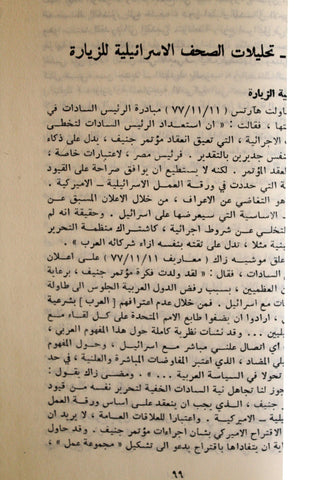 ـ تحليلات الصحف الاسرائيلية للزيارة
ية الزيارة
اولت هآرتس ( ٧٧/١١/١١ ) مبادرة الرئيس السادات في
تها ، فقالت : « ان استعداد الرئيس السادات لتخطي
الاجرائية ، التي تعيق انعقاد مؤتمر جنيف ، يدل على ذكاء
نفس جديرين بالتقدير . فرئيس مصر ، لاعتبارات خاصة ،
عقد المؤتمر . لكنه لا يستطيع ان يوافق صراحة على القيود
ة التي حددت في ورقة العمل الاسرائيلية ـ الاميركية .
هو التغاضي عن الاعراف ، من خلال الاعلان المسبق عن
الاساسية التي سيعرضها على اسرائيل . وحقيقة انه لم
تخلي عن شروط اجرائية ، كاشتراك منظمة التحرير
ينية مثلا ، تدل على ثقته بنفسه ازاء شركائه العرب » .
علق موشيه زاك ( معاريف ٧٧/١١/١١ ) على اعلان
السادات ، فقال : « لقد ولدت فكرة مؤتمر جنيف ، برعاية
ن العظميين ، بسبب رفض الدول العربية الجلوس الى طاولة
ات مع اسرائيل . فمن خلال عدم اعترافهم [ العرب ] بشرعية
، ارادوا ان يضفوا طابع الامم المتحدة على كل لقاء مع
... وقد نشأت نظرية كاملة حول هذا المفهوم العربي ،
أي اتصال علني مباشر مع اسرائيل ، وحول المفهوم
يلي المضاد ، الذي اعتبر المفاوضات المباشرة والعلنية ، في حد
تحولا في السياسة العربية ... » . ومضى زاك يقول :
جوز لنا تجاهل نية السادات الخفية لتحرير نفسه من قيود
جنيف ، الذي يجب ان ينعقد على اساس ورقة العمل
يلية ـ الاميركية . واعتبارا للعلاقات العامة ، لا يريد ان
الاقتراح الاميركي بشأن اجراءات مؤتمر جنيف . وقد حاول
ية ان يتفاداها باقتراح يدعو الى تشكيل « مجموعة عمل » ،
٩٩